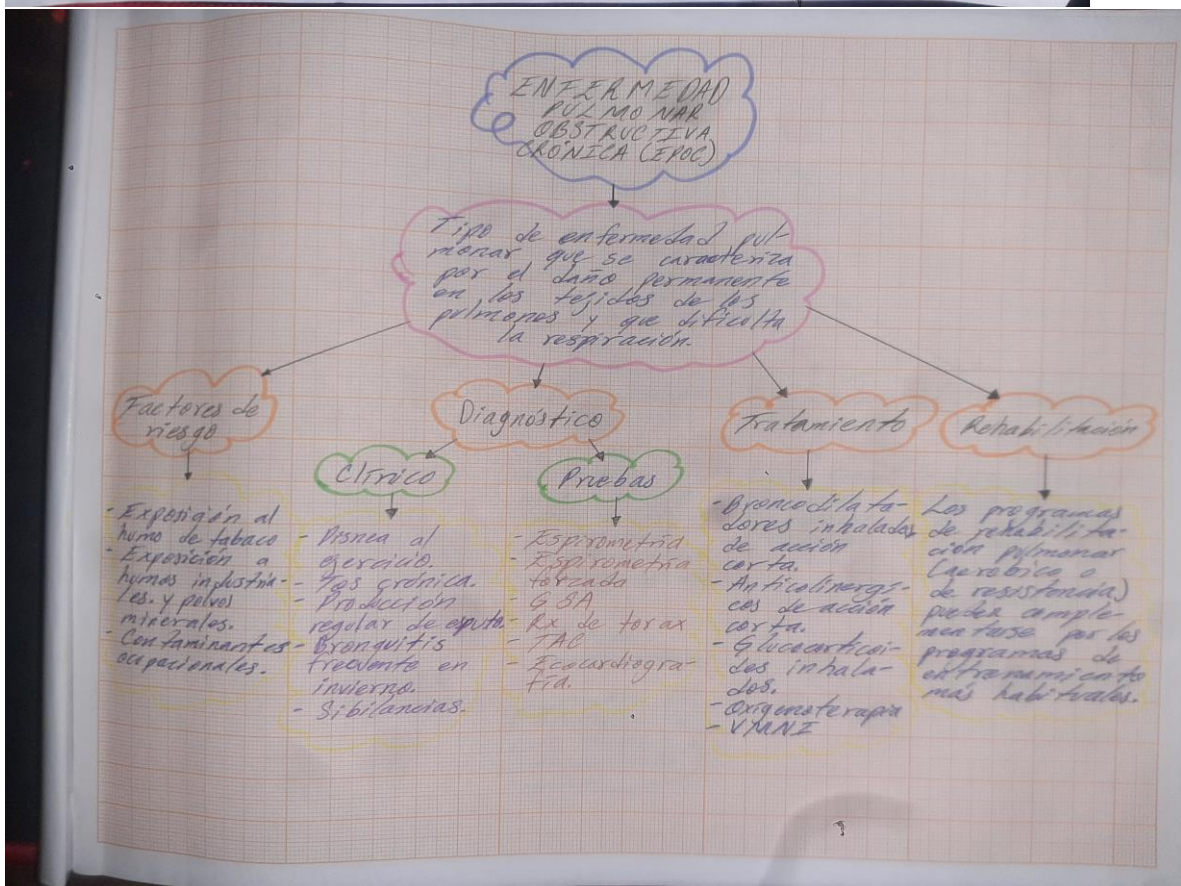 ENFERMEDAD
PULMONAR
OBSTRUCTIVA
CRÓNICA (EPOC)
Tipo de enfermedad pul-
monar que se caracteriza
por el daño permanente
en los tejidos de los
pulmones y que dificulta
la respiración.
Factores de
riesgo
- Exposición al
humo de tabaco
- Exposición a
humos industria-
les. y polvos
minerales.
- Contaminantes
ocupacionales.
Diagnóstico
Clínico
- Disnea al
ejercicio.
- Tos crónica.
- Producción
regular de esputo.
- Bronquitis
frecuente en
invierno.
- Sibilancias.
Pruebas
- Espirometría
- Espirometría
forzada
- GSA
- Rx de torax
- TAC
- Ecocardiogra-
fía.
Tratamiento
- Broncodilata-
dores inhalados
de acción
corta.
- Anticolinergi-
cos de acción
corta.
- Glucocorticoi-
des inhala-
dos.
- Oxigenoterapia
- VMNI
Rehabilitación
Los programas
de rehabilita-
ción pulmonar
(aerobico o
de resistencia)
pueden comple-
mentarse por los
programas de
entrenamiento
más habituales.